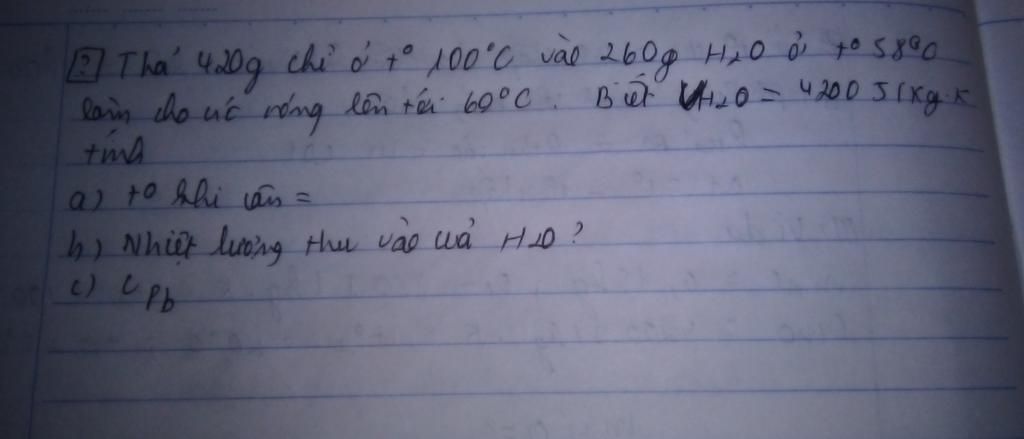 [?] Thả 420g chì ở t° 100°C vào 260g H2O ở t° 58°C
làm cho nước nóng lên tới 60°C. Biết CH2O = 4200 J/kg.K
tính
a) t° khi cân =
b) Nhiệt lượng thu vào của H2O?
c) CPb